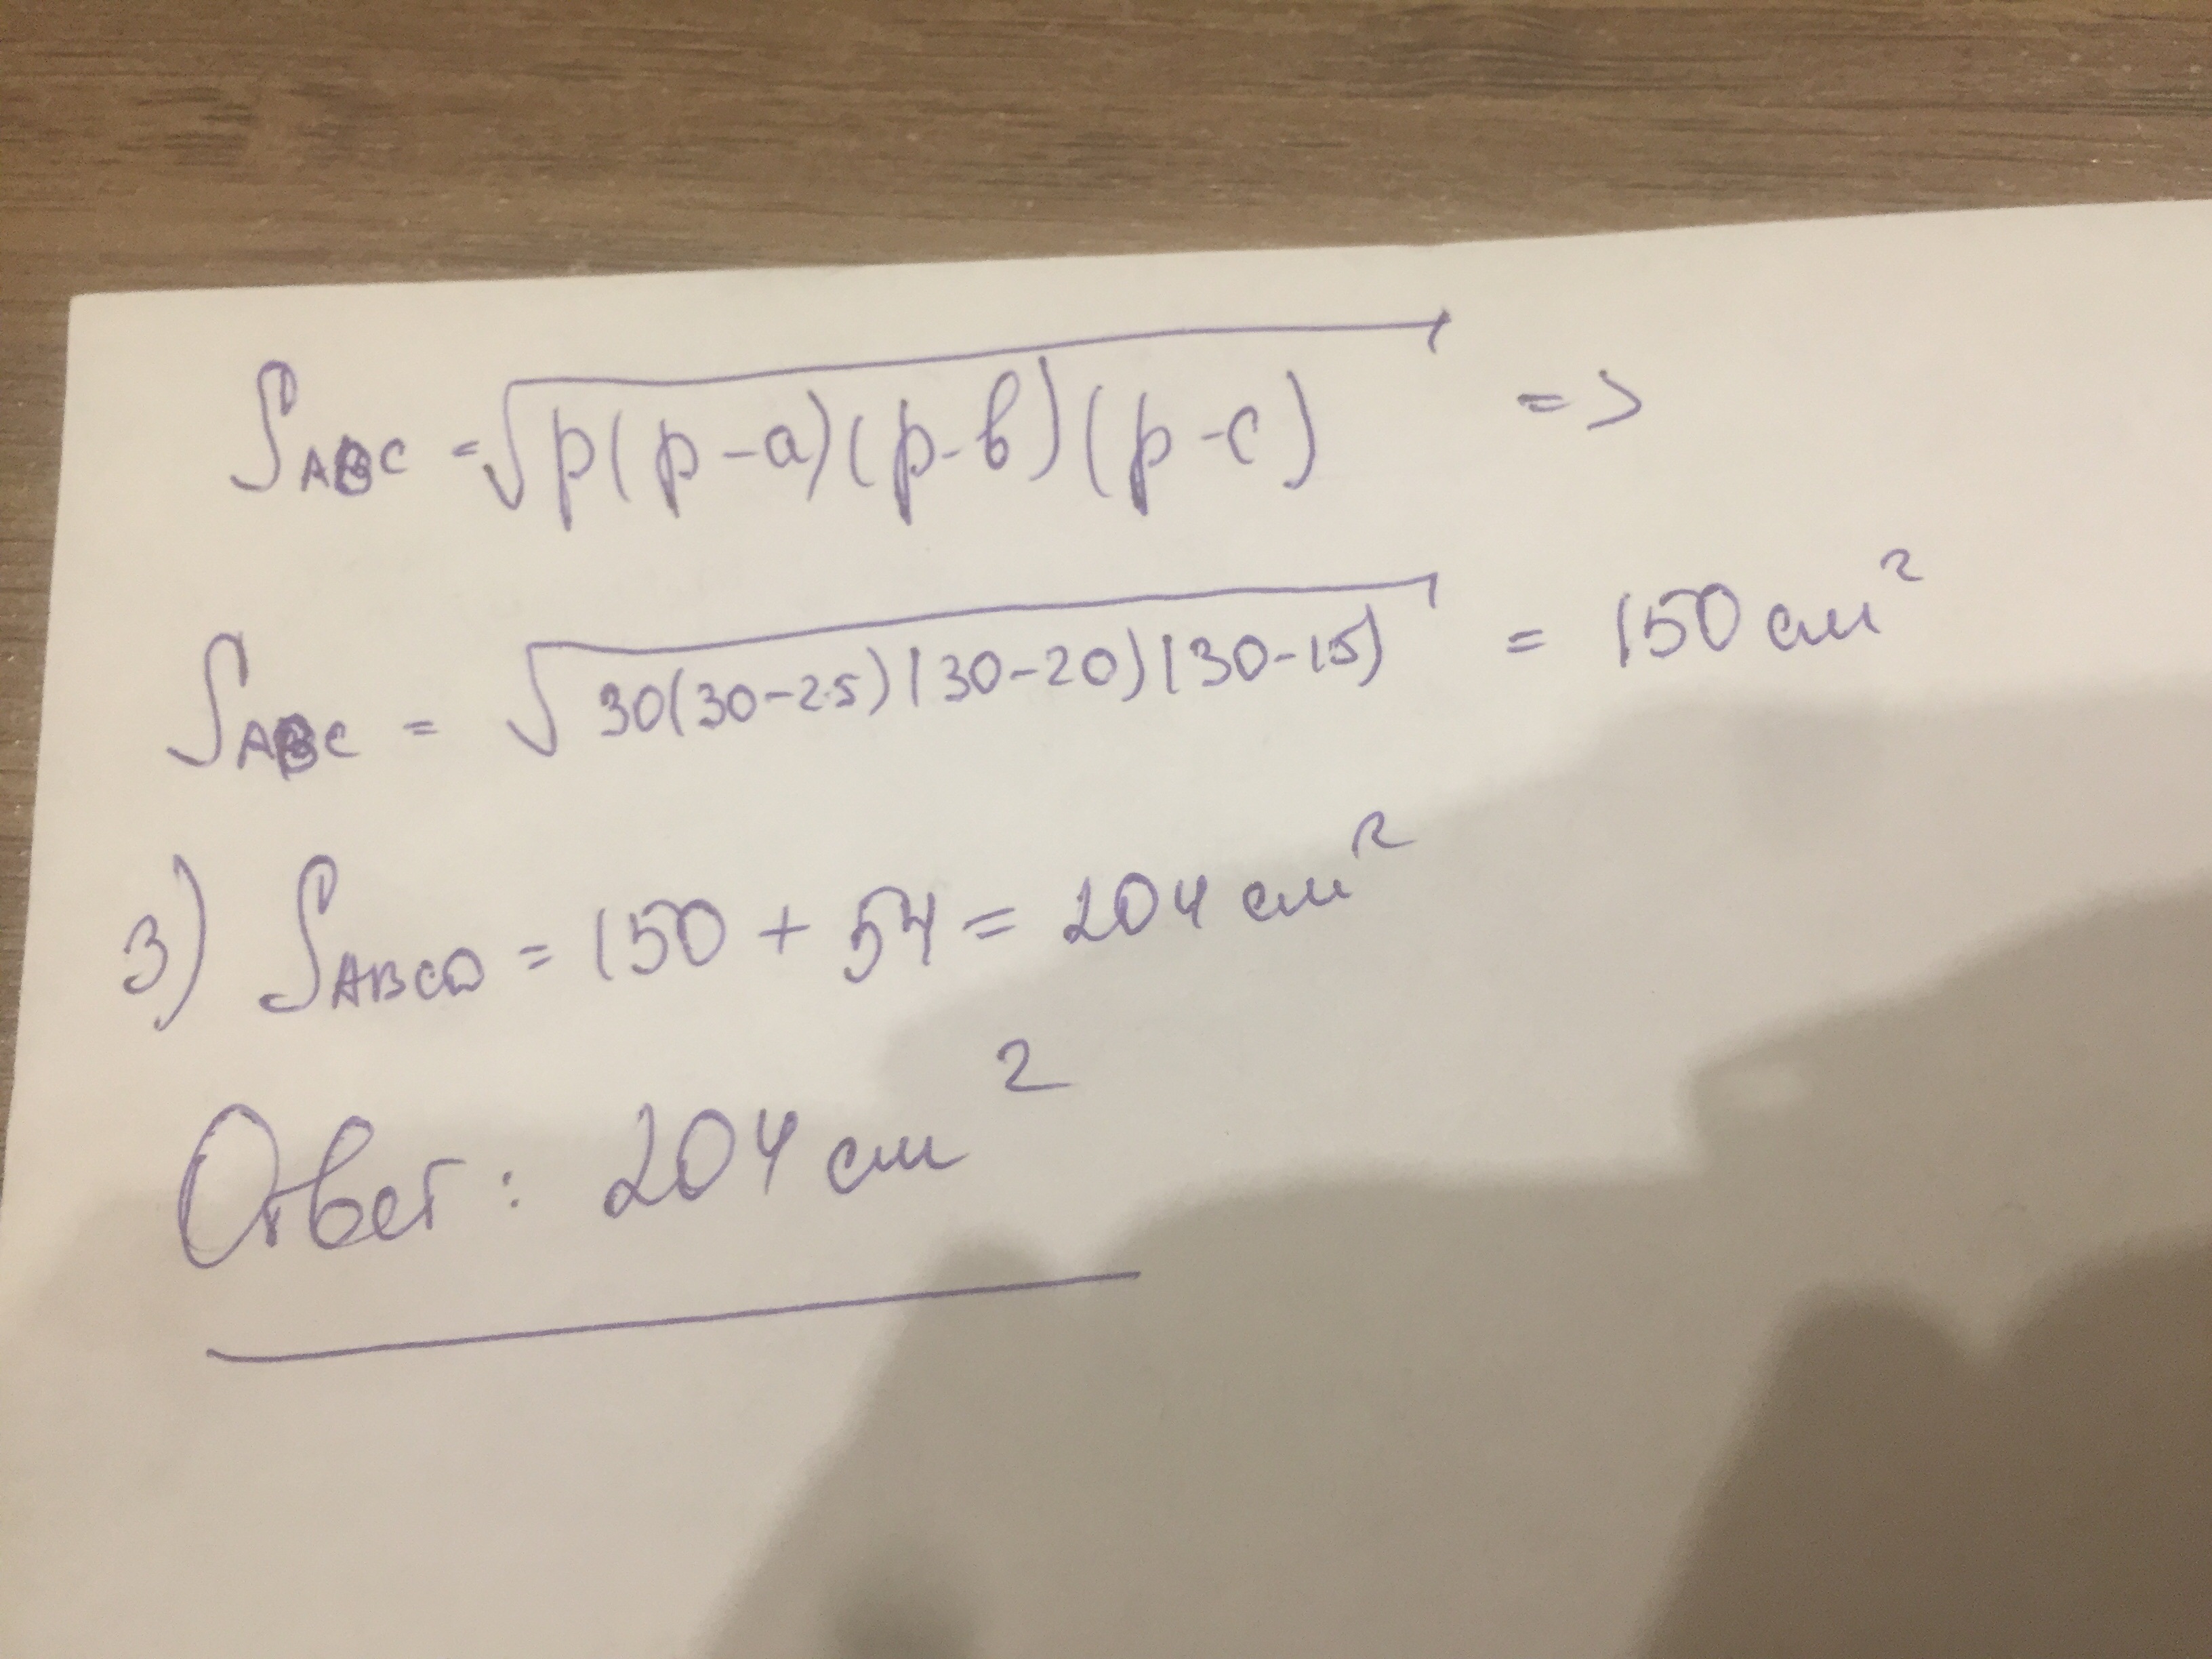 S_ABC = √p(p-a)(p-в)(p-c) =>
S_ABC = √30(30-25)(30-20)(30-15) = 150 см²
3) S_ABCD = 150 + 54 = 204 см²
Ответ: 204 см²